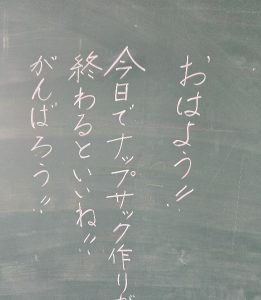 おはよう!!
今日でナップサック作りが
終わるといいね!!
がんばろう!!